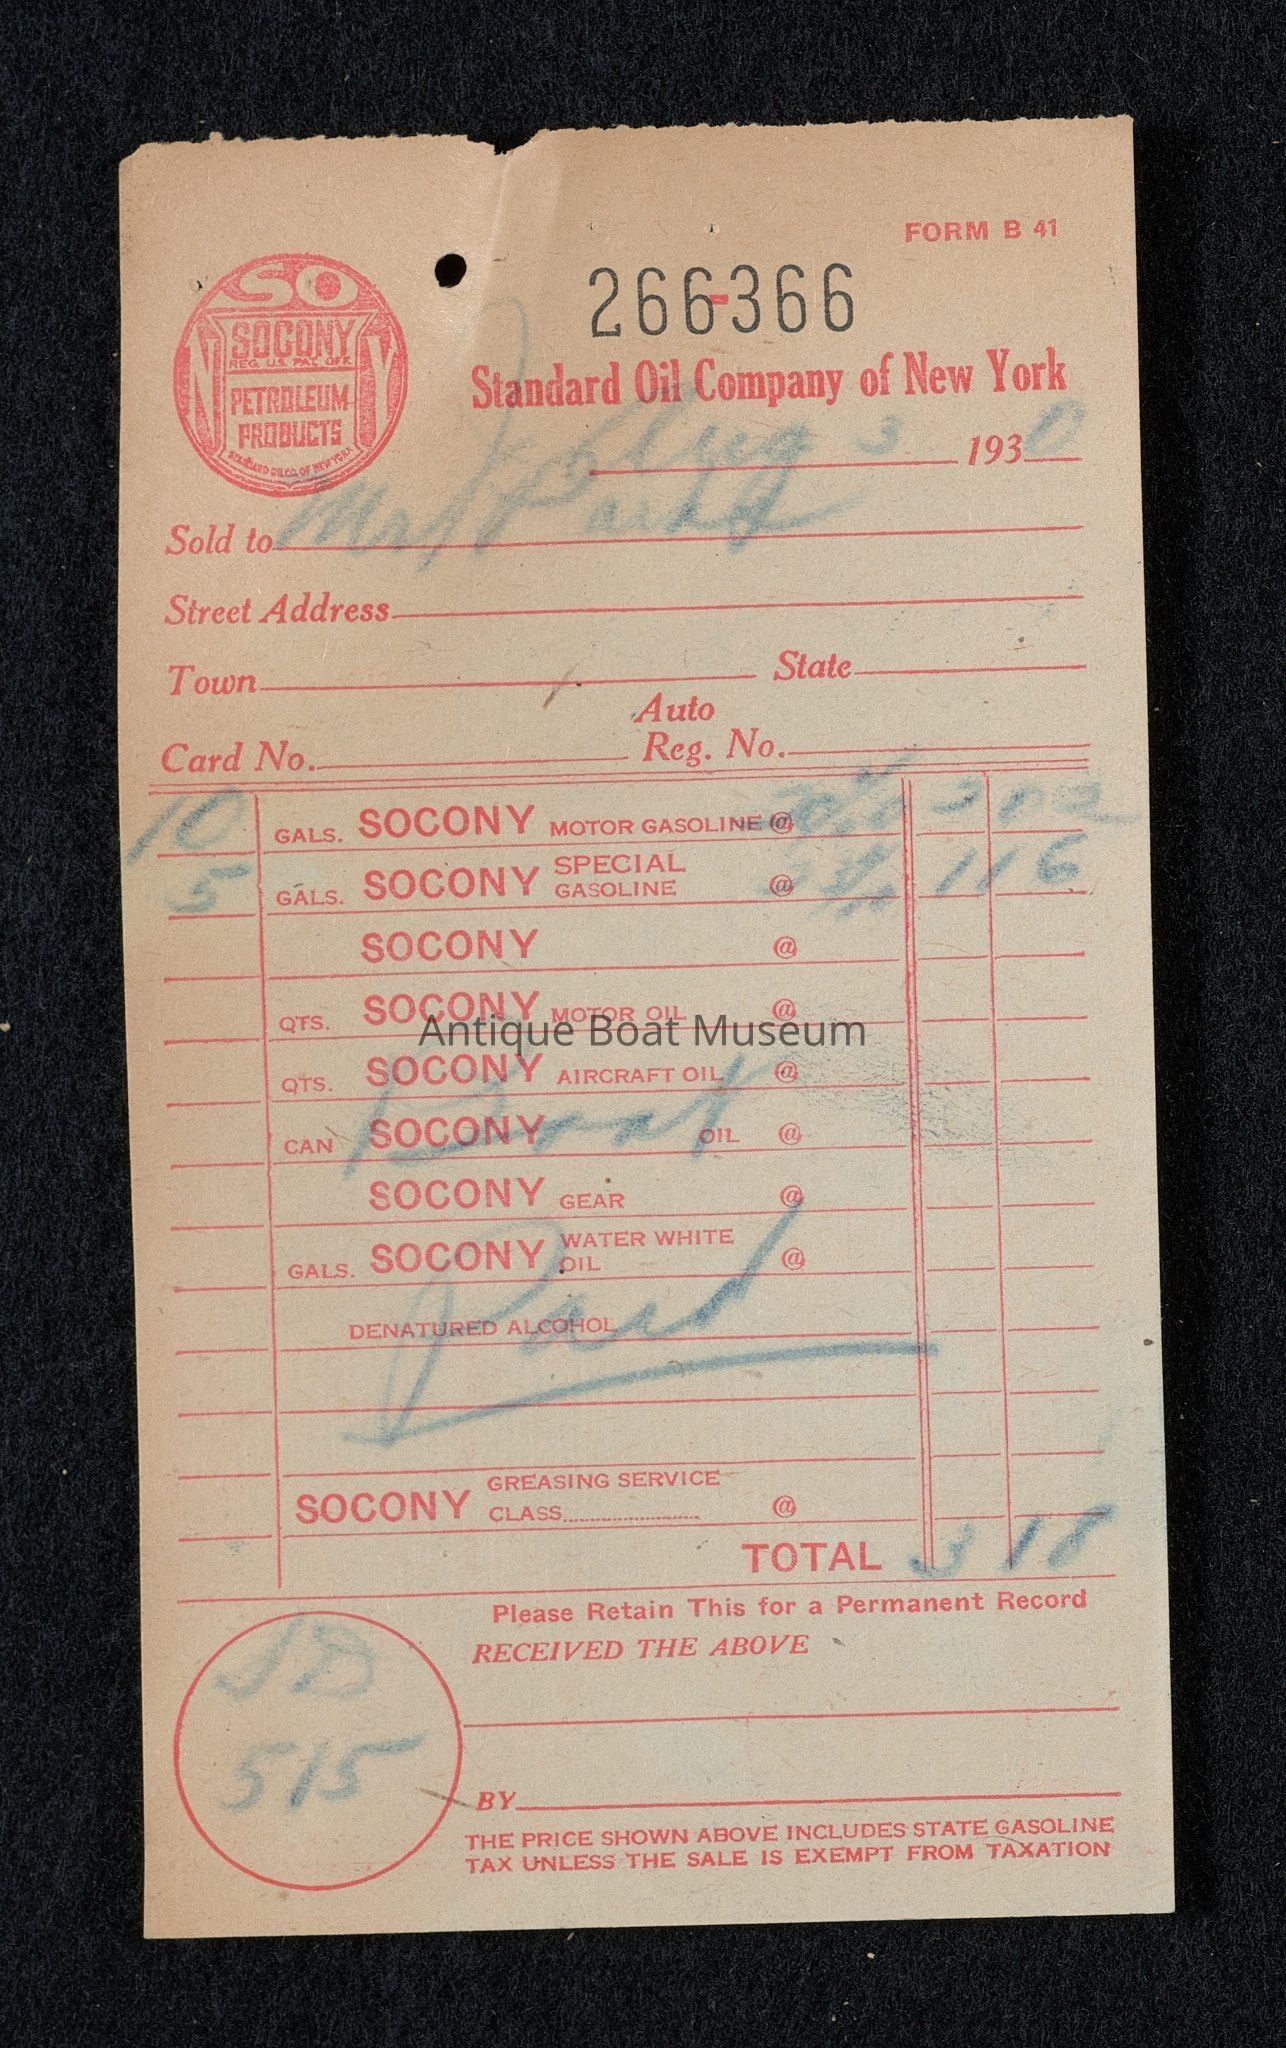 FORM B 41
266-366
SO
SOCONY
REG. U.S. PAT. OFF.
N Y
PETROLEUM
PRODUCTS
STANDARD OIL CO. OF NEW YORK
Standard Oil Company of New York
Aug 3 1930
Sold to Mr
Street Address
Town State
Auto
Card No. Reg. No.
10 GALS. SOCONY MOTOR GASOLINE @ 3 02
5 GALS. SOCONY SPECIAL GASOLINE @ 1 16
SOCONY @
QTS. SOCONY MOTOR OIL @
Antique Boat Museum
QTS. SOCONY AIRCRAFT OIL @
Boat
CAN SOCONY OIL @
SOCONY GEAR @
GALS. SOCONY WATER WHITE OIL @
Paid
DENATURED ALCOHOL
SOCONY GREASING SERVICE
CLASS @
TOTAL 3 18
Please Retain This for a Permanent Record
RECEIVED THE ABOVE
JB
515
BY
THE PRICE SHOWN ABOVE INCLUDES STATE GASOLINE
TAX UNLESS THE SALE IS EXEMPT FROM TAXATION